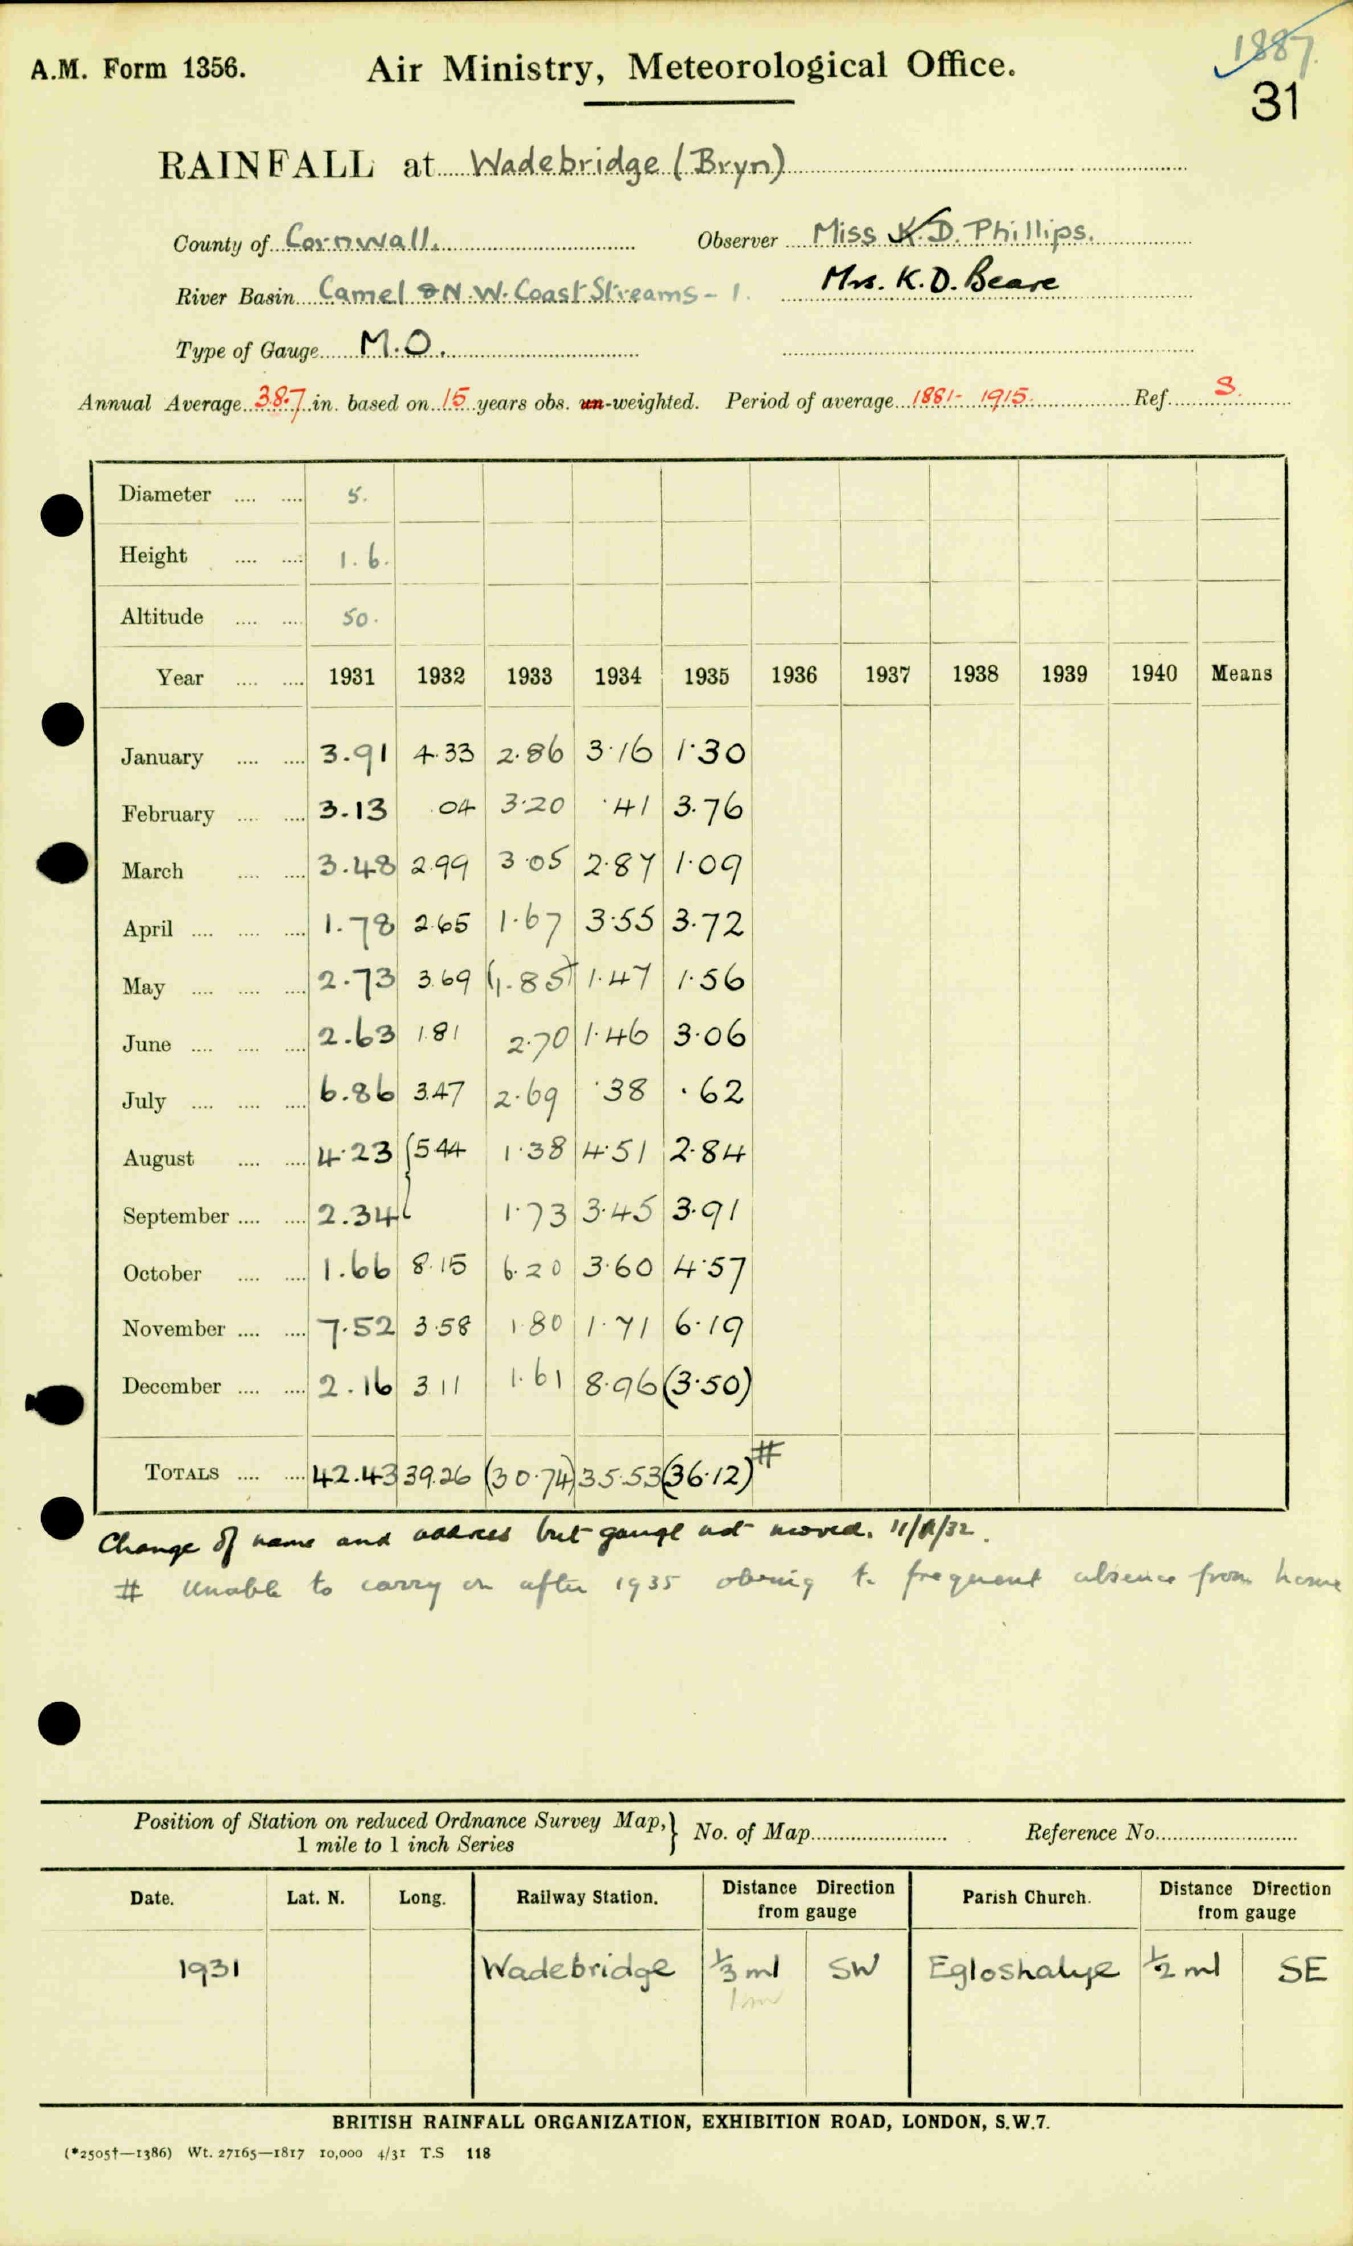 1887.
A.M. Form 1356. Air Ministry, Meteorological Office.
31
RAINFALL at Wadebridge (Bryn)
County of Cornwall. Observer Miss K.D. Phillips.
River Basin Camel & N.W. Coast Streams - 1. Mrs. K.D. Beare
Type of Gauge M.O.
Annual Average 38.7 in. based on 15 years obs. un-weighted. Period of average 1881- 1915. Ref. S.
Diameter .... .... 5.
Height .... .... 1.6.
Altitude .... .... 50.
Year .... .... 1931 1932 1933 1934 1935 1936 1937 1938 1939 1940 Means
January .... .... 3.91 4.33 2.86 3.16 1.30
February .... .... 3.13 .04 3.20 .41 3.76
March .... .... 3.48 2.99 3.05 2.87 1.09
April .... .... .... 1.78 2.65 1.67 3.55 3.72
May .... .... .... 2.73 3.69 (1.85) 1.47 1.56
June .... .... .... 2.63 1.81 2.70 1.46 3.06
July .... .... .... 6.86 3.47 2.69 .38 .62
August .... .... 4.23 {5.44 1.38 4.51 2.84
September .... .... 2.34 1.73 3.45 3.91
October .... .... 1.66 8.15 6.20 3.60 4.57
November .... .... 7.52 3.58 1.80 1.71 6.19
December .... .... 2.16 3.11 1.61 8.96 (3.50)
TOTALS .... .... 42.43 39.26 (30.74) 35.53 (36.12) #
Change of name and address but gauge not moved.
# Unable to carry on after 1935 owing to frequent absence from home
Position of Station on reduced Ordnance Survey Map,} No. of Map Reference No.
1 mile to 1 inch Series
Date. Lat. N. Long. Railway Station. Distance Direction from gauge Parish Church. Distance Direction from gauge
1931 Wadebridge 1/3 ml SW Egloshayle 1/2 ml SE
BRITISH RAINFALL ORGANIZATION, EXHIBITION ROAD, LONDON, S.W.7.
(*2505†—1386) Wt. 27165—1817 10,000 4/31 T.S 118